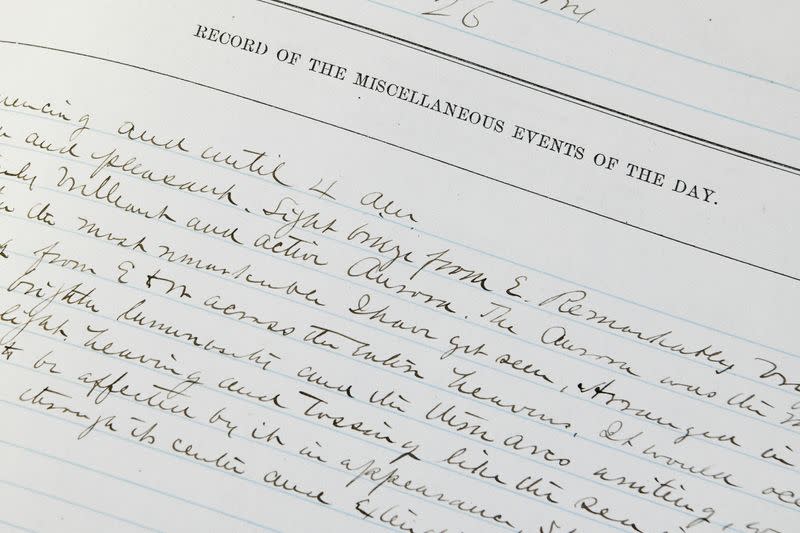 26
RECORD OF THE MISCELLANEOUS EVENTS OF THE DAY.
and until 4 am
and pleasant. Light breeze from E. Remarkably
brilliant and active Aurora. The Aurora was the
the most remarkable I have yet seen. Arranged in
from E to W across the entire heavens. It would
brighter luminosity and the then arcs uniting,
light heaving and tossing like the sea
be affected by it in appearance.
through its center and